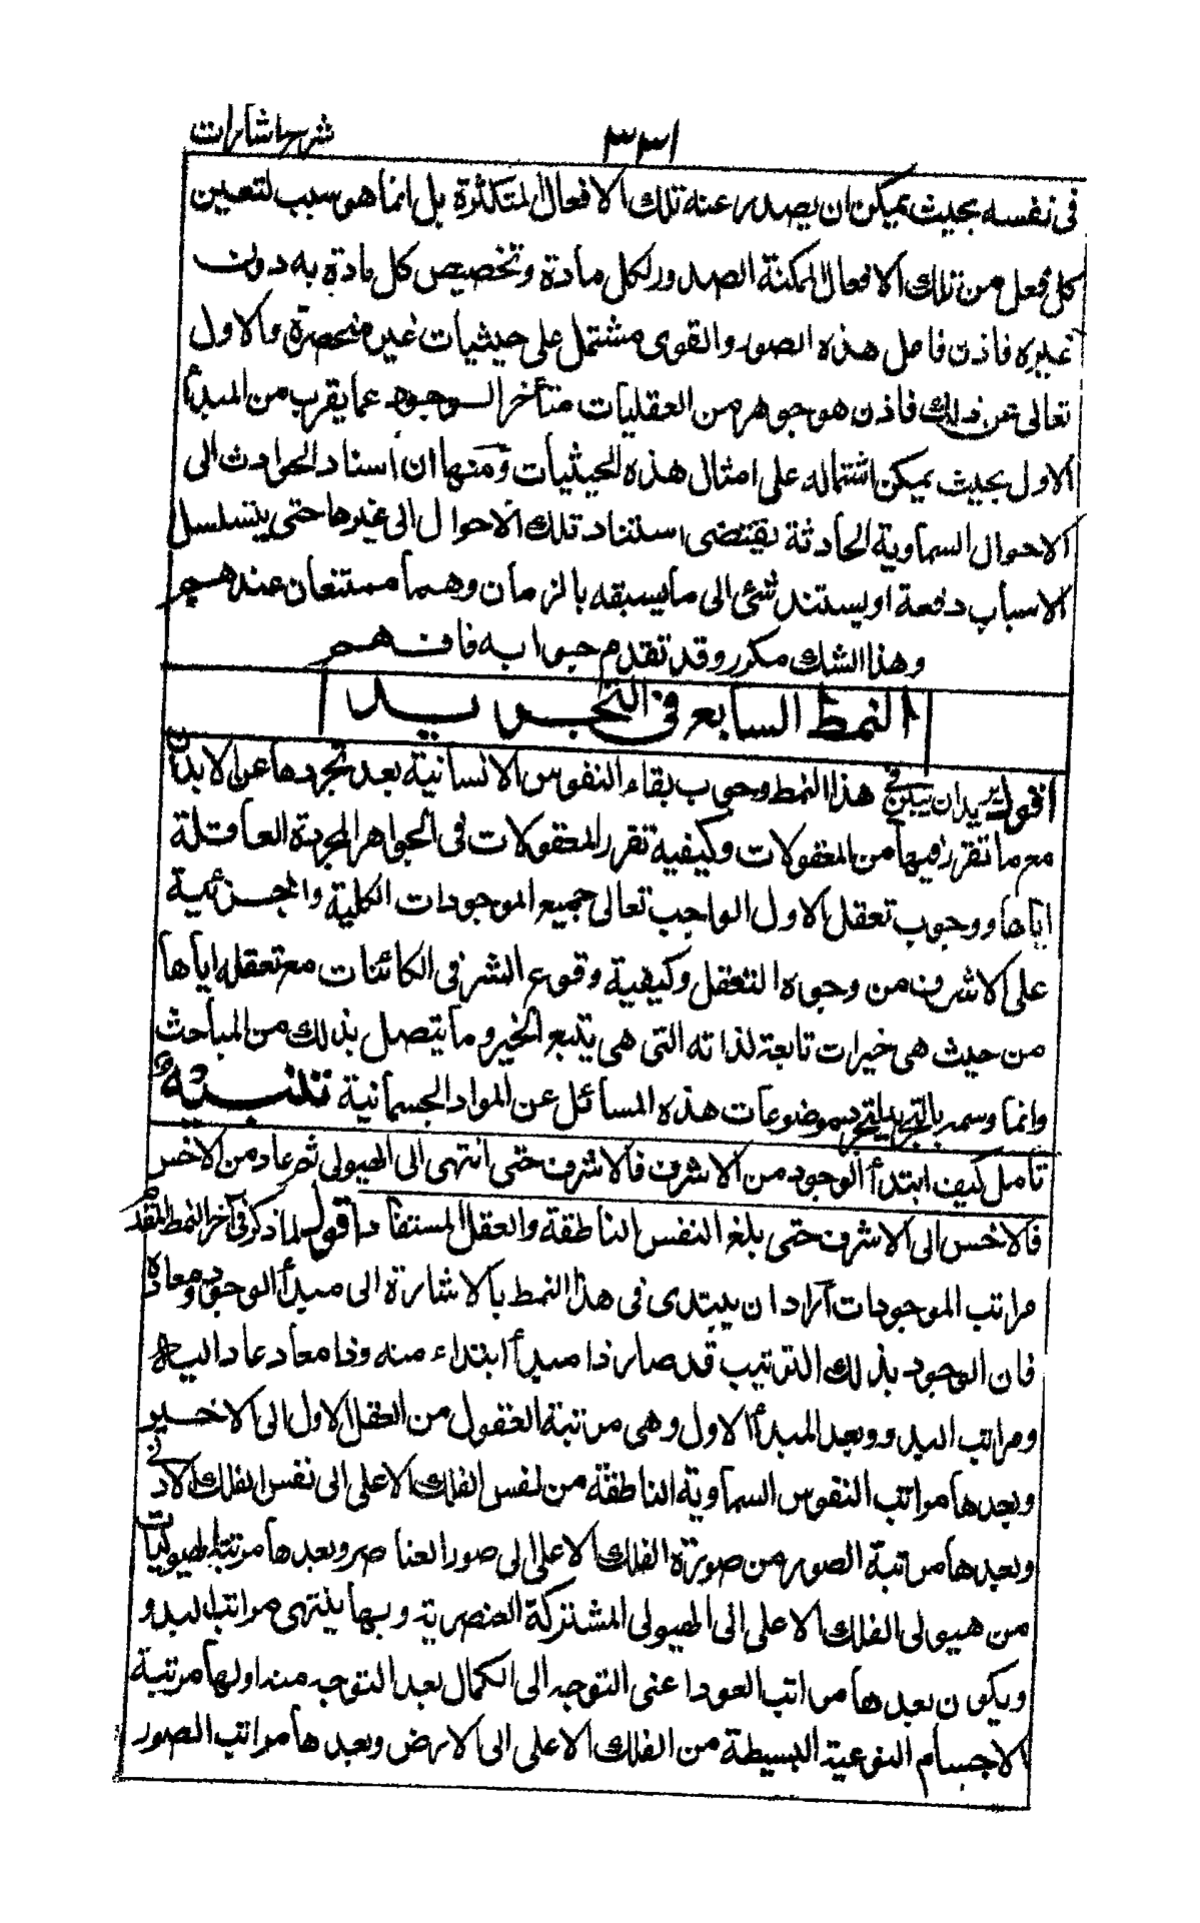 ٣٣١ شرح اشارات
فى نفسه بحيث يمكن ان يصدر عنه تلك الافعال المتكثرة بل انما هو سبب لتعين
كل فعل من تلك الافعال الممكنة الصدور لكل مادة وتخصيص كل مادة به دون
غيره فاذن فاعل هذه الصور والقوى مشتمل على حيثيات غير منحصرة والاول
تعالى عن ذلك فاذن هو جوهر من العقليات متأخر الوجود عما يقرب من المبدأ
الاول بحيث يمكن اشتماله على امثال هذه الحيثيات ومنها ان اسناد الحوادث الى
الاحوال السماوية الحادثة يقتضى استناد تلك الاحوال الى غيرها حتى يتسلسل
الاسباب دفعة او يستند شئ الى ما يسبقه بالزمان وهما ممتنعان عندهم
وهذا الشك مكرر وقد تقدم جوابه فافهم
النمط السابع فى التجريد
اقول يريد ان يبين فى هذا النمط وجوب بقاء النفوس الانسانية بعد تجردها عن الابدان
مع ما تقرر فيها من المعقولات وكيفية تقرر المعقولات فى الجواهر المجردة العاقلة
اياها ووجوب تعقل الاول الواجب تعالى جميع الموجودات الكلية والجزئية
على الاشرف من وجوه التعقل وكيفية وقوع الشر فى الكائنات مع تعقله اياها
من حيث هى خيرات تابعة لذاته التى هى ينبع الخير وما يتصل بذلك من المباحث
وانما وسمه بالتجريد لتجرد موضوعات هذه المسائل عن المواد الجسمانية تنبيه
تأمل كيف ابتدأ الوجود من الاشرف فالاشرف حتى انتهى الى الهيولى ثم عاد من الاخس
فالاخس الى الاشرف حتى بلغ النفس الناطقة والعقل المستفاد اقول لما ذكر فى آخر النمط المتقدم
مراتب الموجودات اراد ان يبتدى فى هذا النمط بالاشارة الى مبدأ الوجود ومعاده
فان الوجود بذلك الترتيب قد صار ذا مبدأ ابتداء منه وذا معاد عاد اليه
ومراتب البدو وبعد المبدأ الاول وهى مرتبة العقول من العقل الاول الى الاخير
وبعدها مراتب النفوس السماوية الناطقة من نفس الفلك الاعلى الى نفس الفلك الادنى
وبعدها مرتبة الصور من صورة الفلك الاعلى الى صور العناصر وبعدها مرتبة الهيوليات
من هيولى الفلك الاعلى الى الهيولى المشتركة العنصرية وبها ينتهى مراتب البدو
ويكون بعدها مراتب العود اعنى التوجه الى الكمال بعد التوجه منه اولها مرتبة
الاجسام النوعية البسيطة من الفلك الاعلى الى الارض وبعدها مراتب الصور